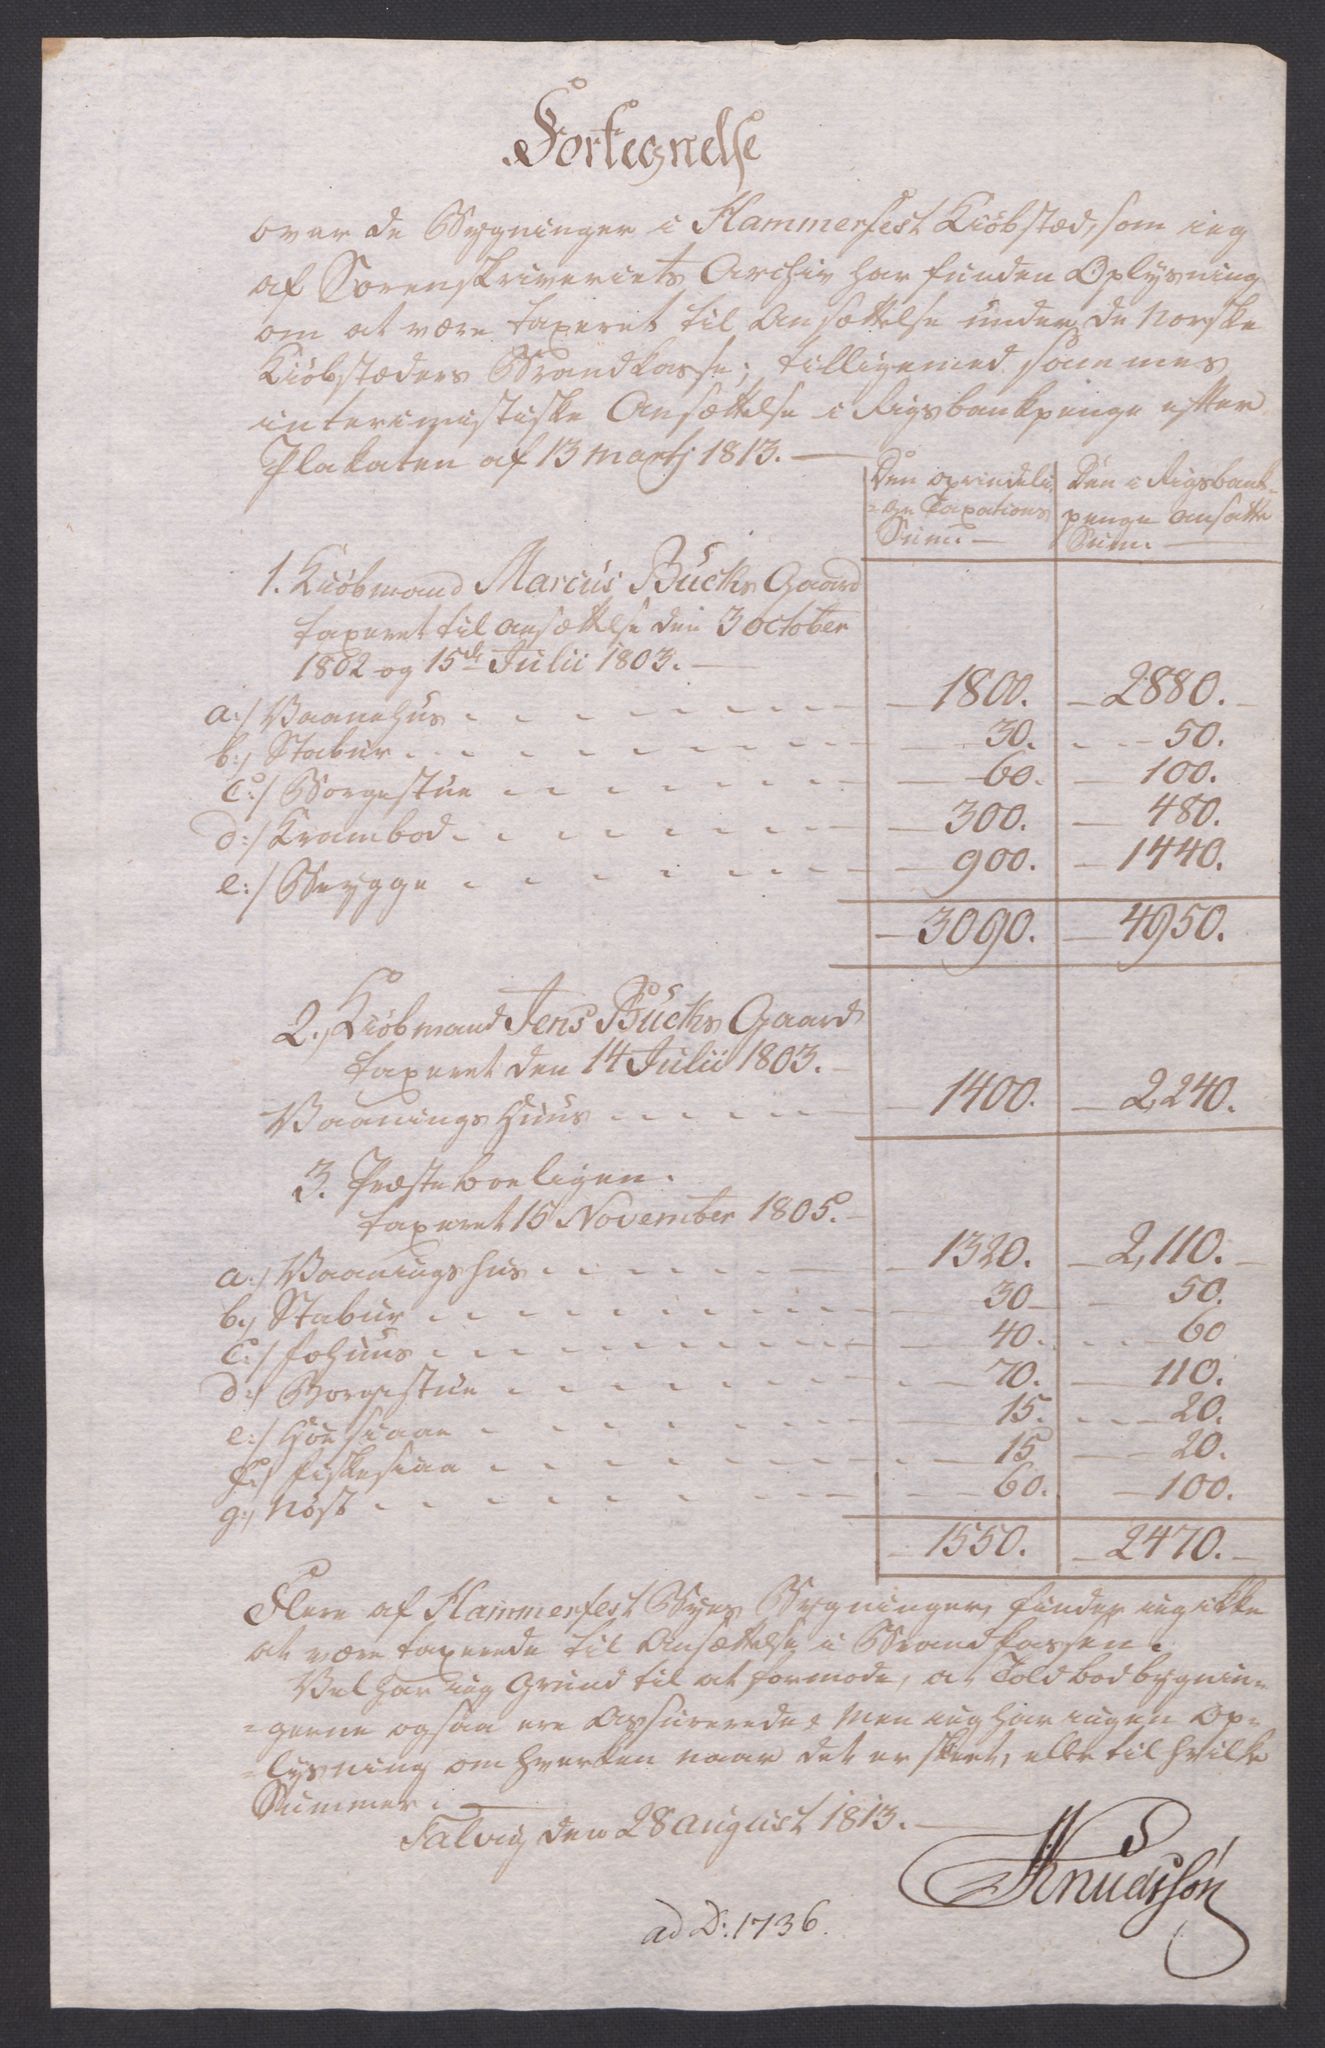 Fortegnelse
over de Bygninger i Hammerfest Kiøbstæd, som ieg
af Sorenskriveriets Archiv har funden Oplysning
om at være taxeret til Ansættelse under de Norske
Kiøbstæders Brandkasse; tilligemed sammes
interimistiske Ansættelse i Rigsbankpenge efter
Plakaten af 13 Martj 1813.
Den oprindeli- Den i Rigsbank-
-ge Taxations penge ansatte
Sum. Sum.
1. Kiøbmand Marcus Bucks Gaard
taxeret til ansættelse den 3 October
1802 og 15de Julii 1803.
a:/ Vaanehus 1800. 2880.
b:/ Stabur 30. 50.
c:/ Borgestue 60. 100.
d:/ Krambod 300. 480.
e:/ Brygge 900. 1440.
3090. 4950.
2. Kiøbmand Jens Bucks Gaard
taxeret den 14 Julii 1803.
Vaanings Huus 1400. 2240.
3. Præsteboeligen.
taxeret 15 November 1805.
a:/ Vaaningshus 1320. 2,110.
b:/ Stabur 30 50.
c:/ Føhuus 40. 60
d:/ Borgestue 70. 110.
e:/ Høesiaae 15. 20.
f:/ Fiskesiaa 15 20.
g:/ Nøst 60. 100.
1550. 2470.
Flere af Hammerfest Byes Bygninger, finder ieg ikke
at være taxerede til Ansættelse i Brandkassen.
Vel har ieg Grund til at formode, at Toldbodbygnin-
-gerne ogsaa ere Assurerede; Men ieg har ingen Op-
-lysning om hverken naar det er skeet, eller til hvilke
Summer.
Talvig den 28 August 1813.
Knudssøn
ad D: 1736.